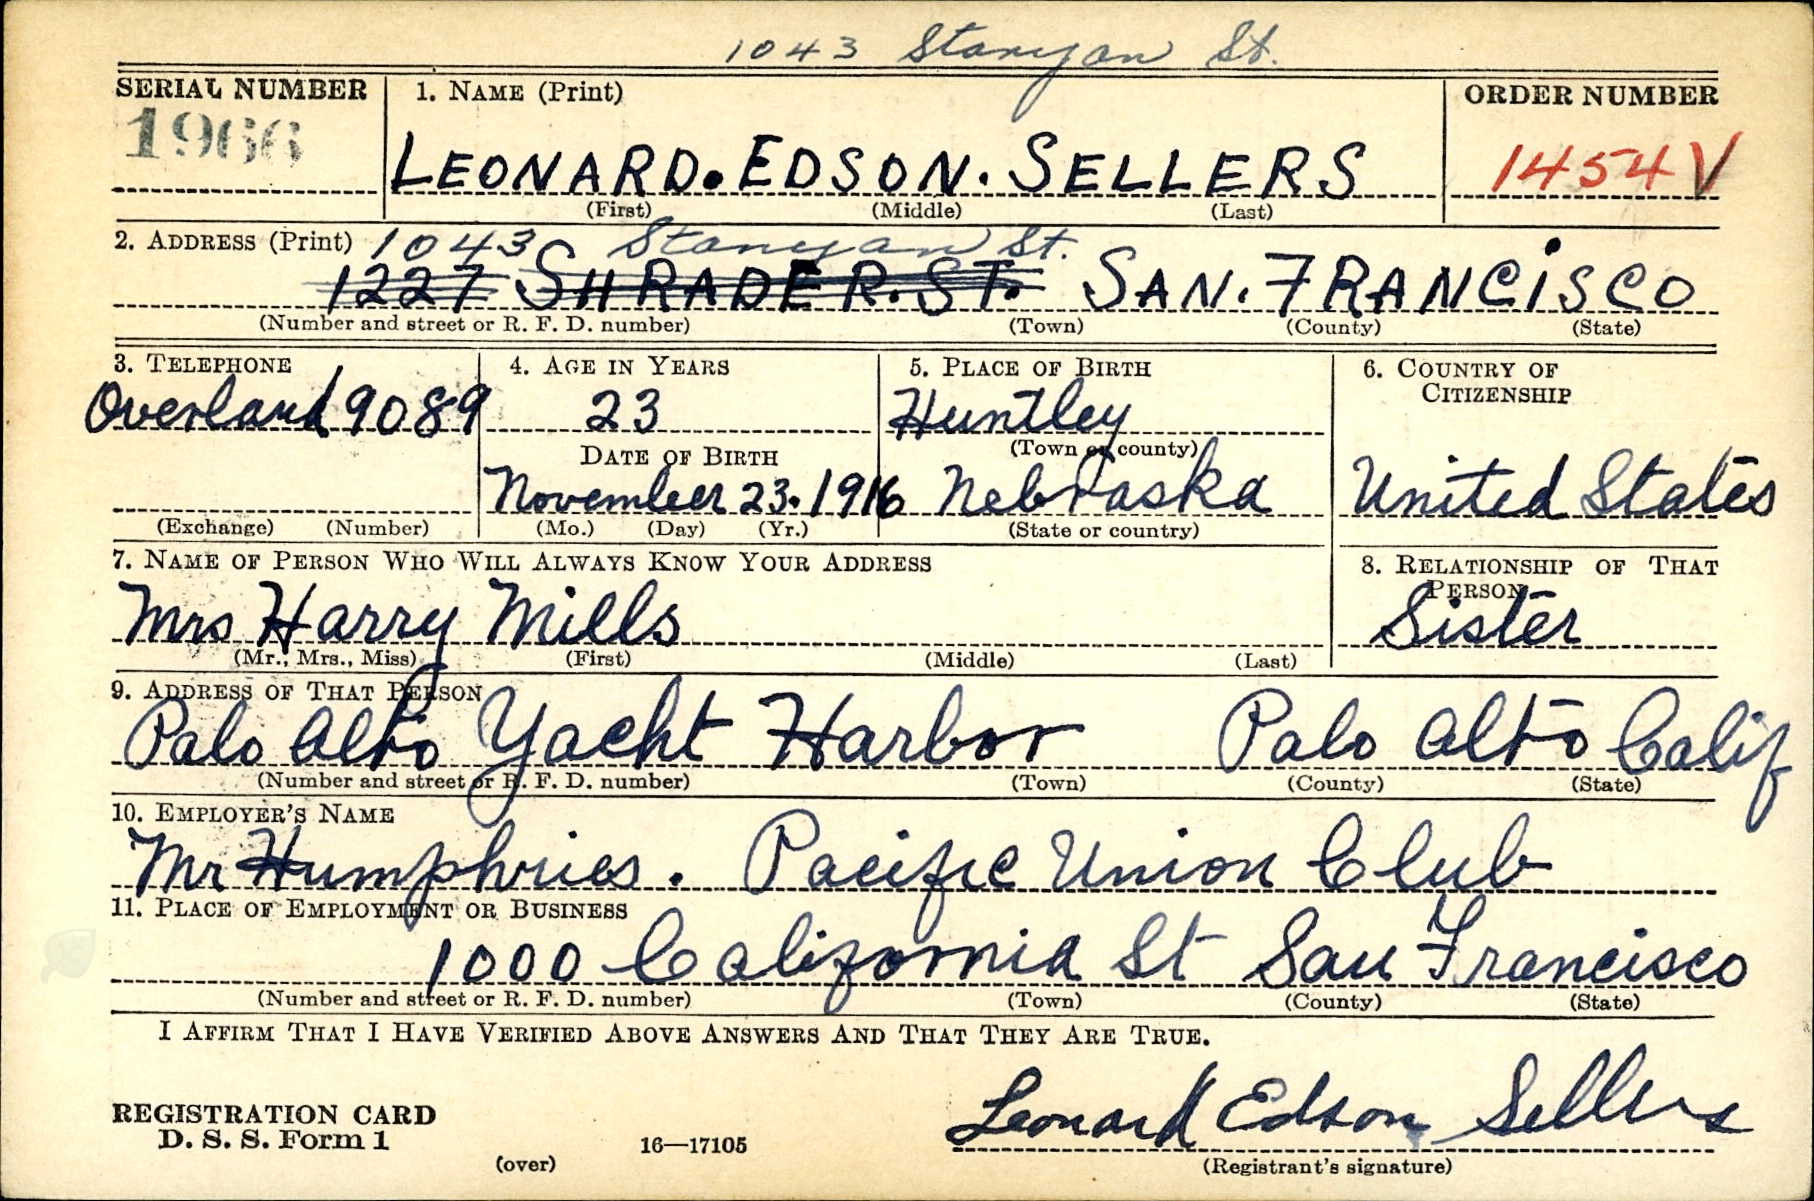 1043 Stanyan St.
SERIAL NUMBER
1. NAME (Print)
ORDER NUMBER
1966
LEONARD. EDSON. SELLERS
1454 V
(First) (Middle) (Last)
2. ADDRESS (Print) 1043 Stanyan St.
1227 SHRADER. ST. SAN. FRANCISCO
(Number and street or R. F. D. number) (Town) (County) (State)
3. TELEPHONE
4. AGE IN YEARS
5. PLACE OF BIRTH
6. COUNTRY OF
CITIZENSHIP
Overland 9089
23
Huntley
(Town or county)
DATE OF BIRTH
November 23. 1916
Nebraska
United States
(Exchange) (Number)
(Mo.) (Day) (Yr.)
(State or country)
7. NAME OF PERSON WHO WILL ALWAYS KNOW YOUR ADDRESS
8. RELATIONSHIP OF THAT
PERSON
Mrs Harry Mills
Sister
(Mr., Mrs., Miss) (First) (Middle) (Last)
9. ADDRESS OF THAT PERSON
Palo Alto Yacht Harbor Palo Alto Calif
(Number and street or R. F. D. number) (Town) (County) (State)
10. EMPLOYER'S NAME
Mr Humphries. Pacific Union Club
11. PLACE OF EMPLOYMENT OR BUSINESS
1000 California St San Francisco
(Number and street or R. F. D. number) (Town) (County) (State)
I AFFIRM THAT I HAVE VERIFIED ABOVE ANSWERS AND THAT THEY ARE TRUE.
Leonard Edson Sellers
REGISTRATION CARD
D. S. S. Form 1
16—17105
(over)
(Registrant's signature)